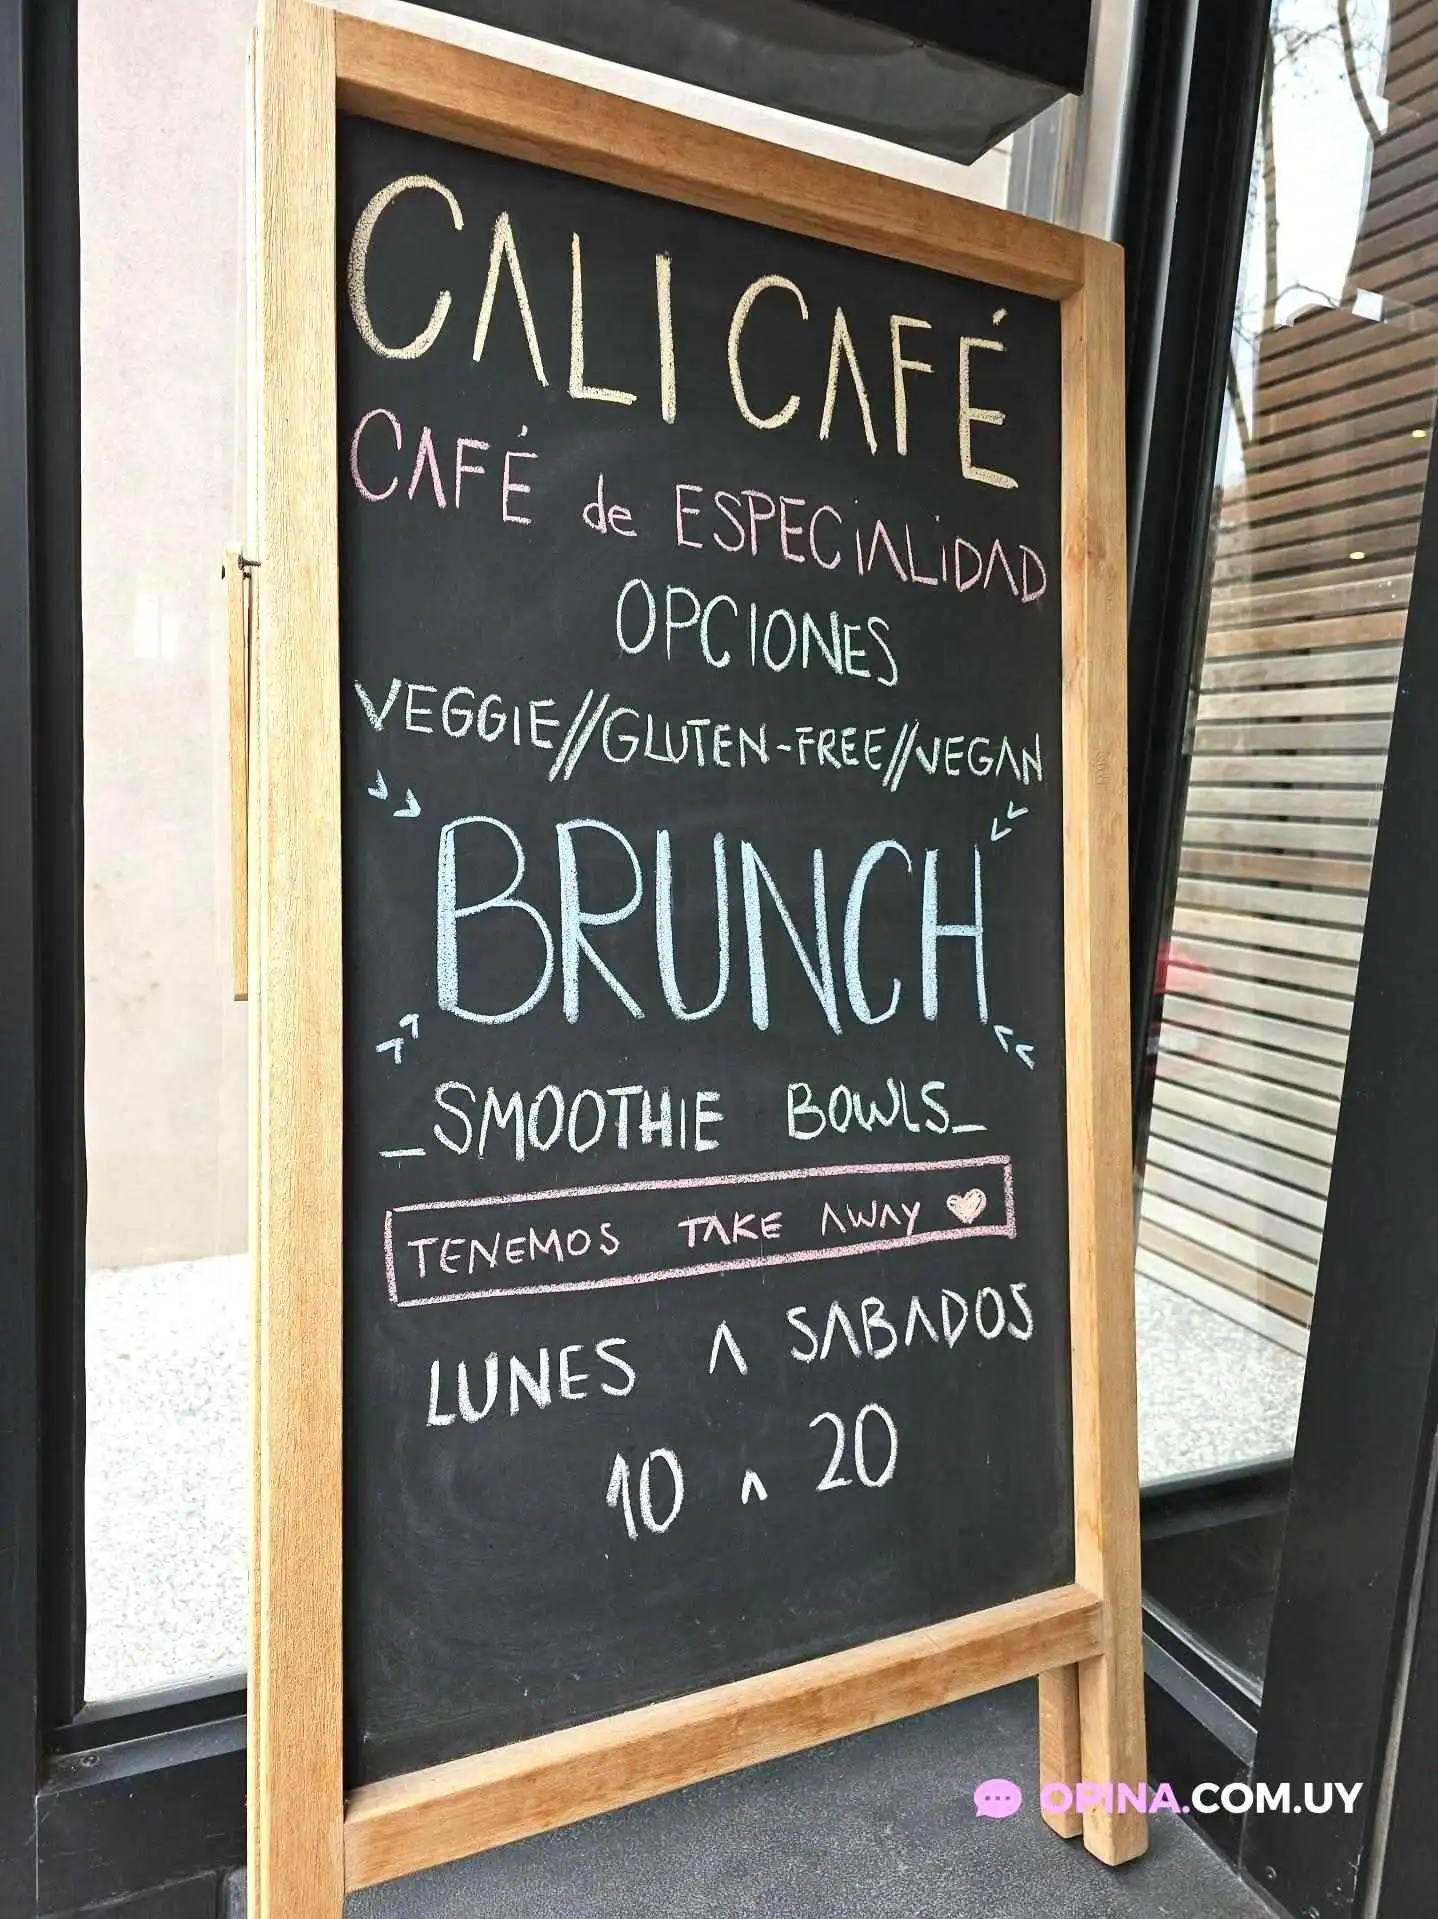 CALI CAFÉ
CAFÉ de ESPECIALIDAD
OPCIONES
VEGGIE//GLUTEN-FREE//VEGAN
BRUNCH
_SMOOTHIE BOWLS_
TENEMOS TAKE AWAY
LUNES A SABADOS
10 A 20
OPINA.COM.UY